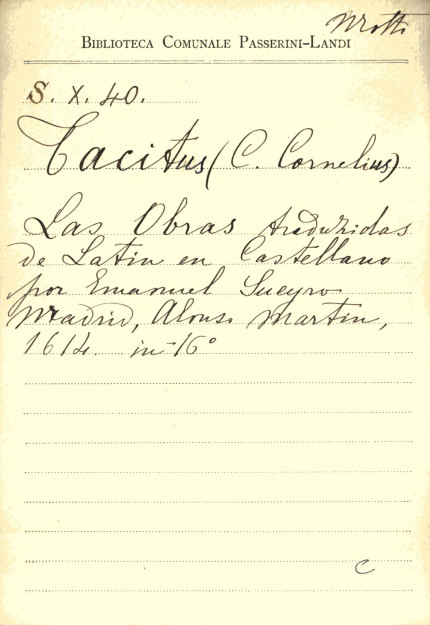 BIBLIOTECA COMUNALE PASSERINI-LANDI
S. X. 40.
Tacitus (C. Cornelius)
Las Obras traduzidas
de Latin en Castellano
por Emanuel Sueyro
Madrid, Alonso Martin,
1614. in-16°
C